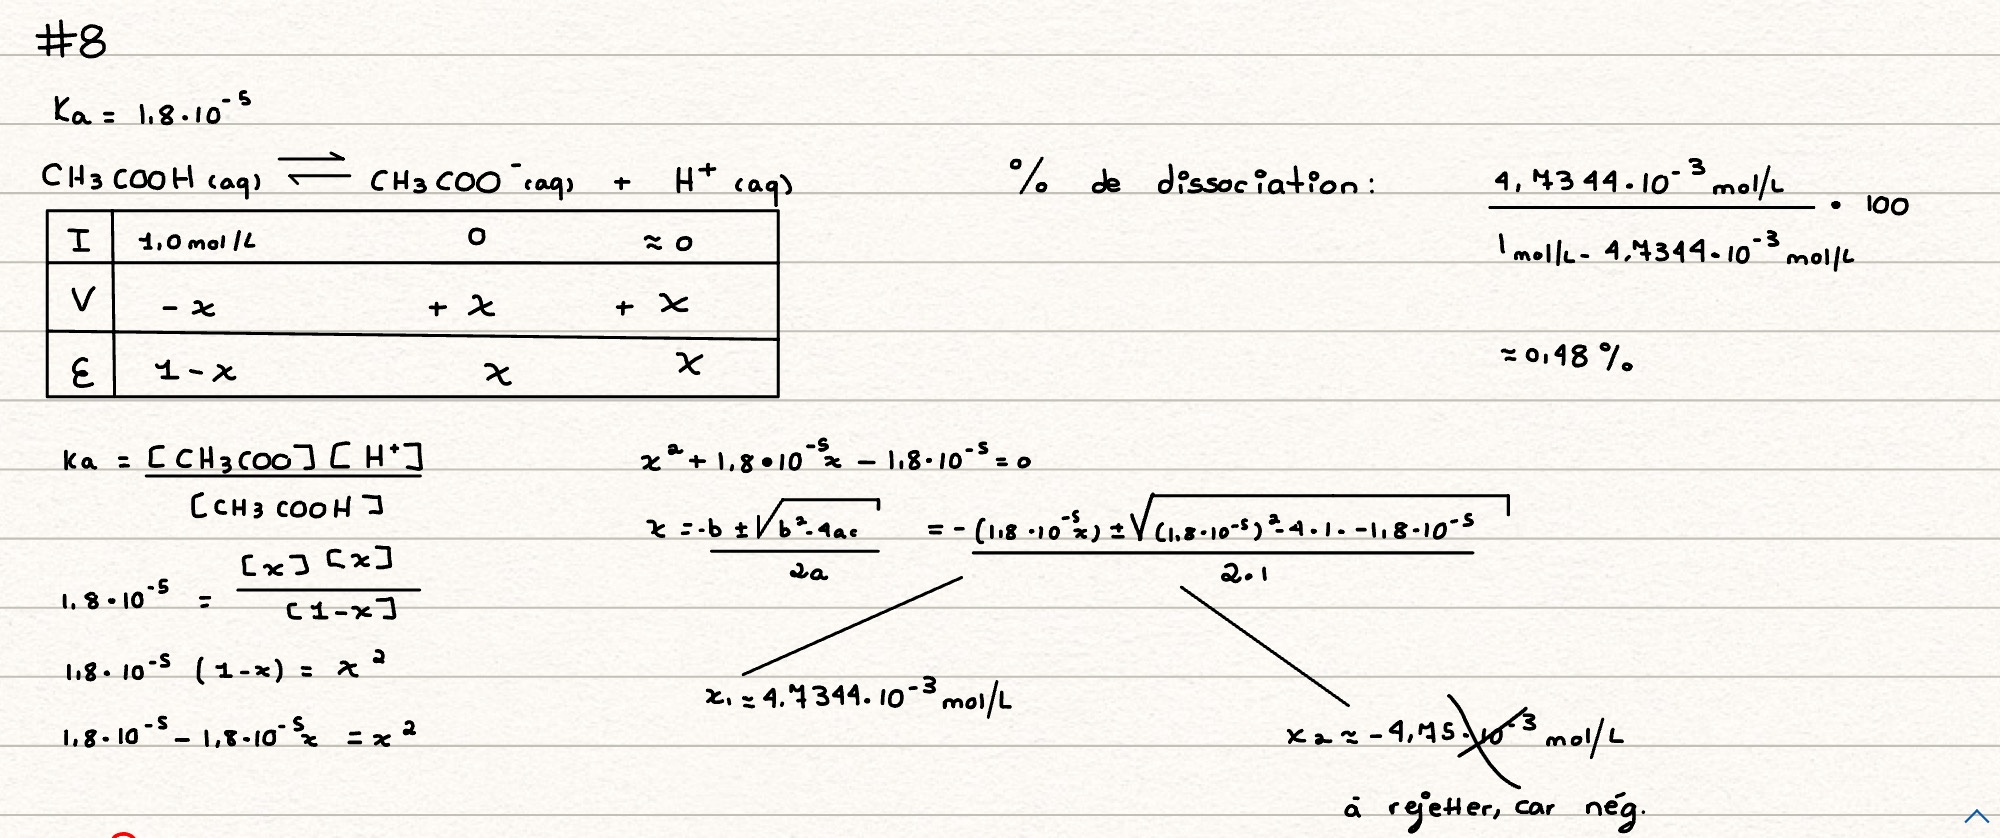 #8
Ka = 1,8·10⁻⁵
CH3COOH (aq) ⇌ CH3COO⁻(aq) + H⁺ (aq)
I 1,0 mol/L 0 ≈ 0
V - x + x + x
E 1-x x x
Ka = [CH3COO] [H⁺]
[CH3COOH]
1,8·10⁻⁵ = [x] [x]
[1-x]
1,8·10⁻⁵ (1-x) = x²
1,8·10⁻⁵ - 1,8·10⁻⁵x = x²
x² + 1,8·10⁻⁵x - 1,8·10⁻⁵ = 0
x = -b ± √b²-4ac = -(1,8·10⁻⁵x) ± √(1,8·10⁻⁵)²-4·1·-1,8·10⁻⁵
2a 2·1
x₁ ≈ 4,7344·10⁻³ mol/L
x₂ ≈ -4,75·10⁻³ mol/L
à rejetter, car nég.
% de dissociation: 4,7344·10⁻³ mol/L · 100
1 mol/L - 4,7344·10⁻³ mol/L
≈ 0,48 %